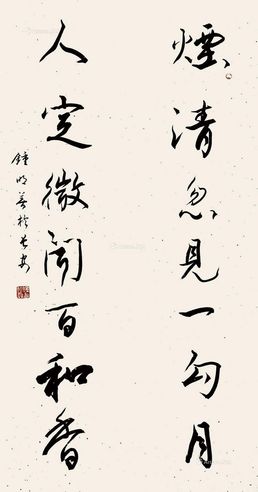 煙清忽見一勾月
人定微聞百和香
鐘明善於長安